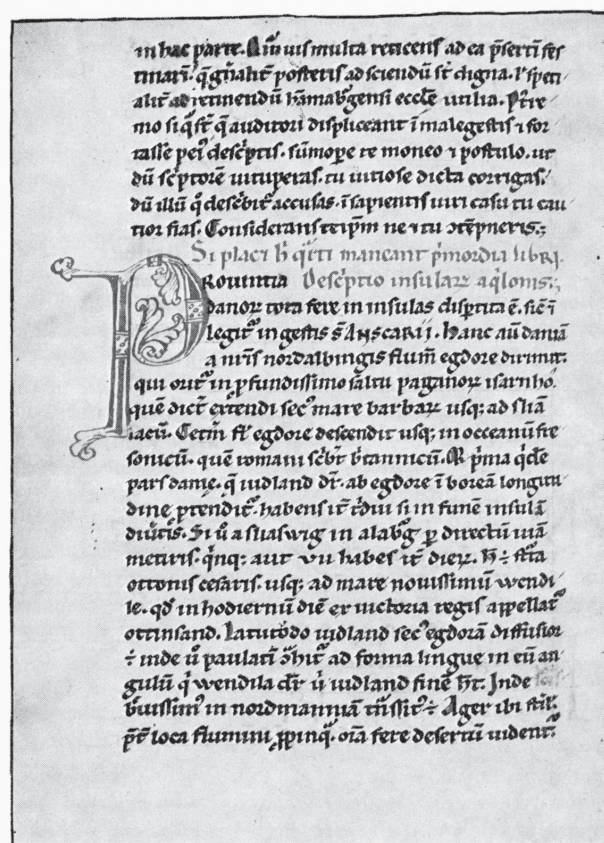 in hac parte. Qm̄uis multa reticens ad ea p̄sertī fes
tinarī. q̄ gn̄alit᷑ posteris ad sciendū st̄ digna. ł speti
alit᷑ ad retinendū ham̄abgensi eccłe utilia. Pt̄re
mo si q̄ st̄ q̄ auditori displiceant ī male gestis ⁊ for
tasse peiꝰ descptis. sūmope te moneo ⁊ postulo. ut
dū sc̄ptorē uituperas. tu uitiose dicta corrigas.
dū illū q̇ desc̄bit᷑ accusas. īsapientis uiri casu tu cau
tior fias. Considerans teipm̄ ne ⁊ tu ↄtēpneris.;
Si placꝫ h̄ q̇rti maneant p̄mordia libri.
PROVINTIA Desc̄ptio insularꝝ aq̇lonis.;
danorꝝ tota fere in insulas disp̄tita ē. sic̄ ⁊
legit᷑ in gestis s̄ Anscarii. Hanc aū daniā
a nr̄is nordalbingis flum̄ egdore dirimit.
qui orit᷑ in ꝓfundissimo saltu paganorꝝ isarnho.
quē dict̄ extendi secꝰ mare barbarꝝ usqꝫ ad sliā
lacū. Cetm̄ fł egdore descendit usqꝫ in occeanū fre
sonicū. quē romani scb̄t b̄tannicū. At p̄ma q̇dē
pars danie. q̄ iudland dr̄. ab egdore ī boreā longitu
dine p̄tendit᷑. habens it᷑ t̄dui si in funē insulā
diūtis. Si ū a sliaswig in alabg̃ p̱ directū uiā
metiris. q̇nqꝫ aut vii habes it᷑ dierꝝ. H̄ ÷ st̄ta
ottonis cesaris. usqꝫ ad mare nouissimū wendi
le. qd̄ in hodiernū diē ex uictoria regis appellat᷑
ottinsand. Latitudo iudland secꝰ egdorā diffusior
÷ inde ū paulatī ↄ̄hit᷑ ad forma lingue in eū an
gulū q̇ wendila dr̄ ů iudland finē ht̄. Inde
b̄uissimꝰ in nordmanniā tn̄sitꝰ ÷ Ager ibi st̄il.
p̄t̄ loca flumini ꝓpinq̄. oīa fere desertū uident᷑